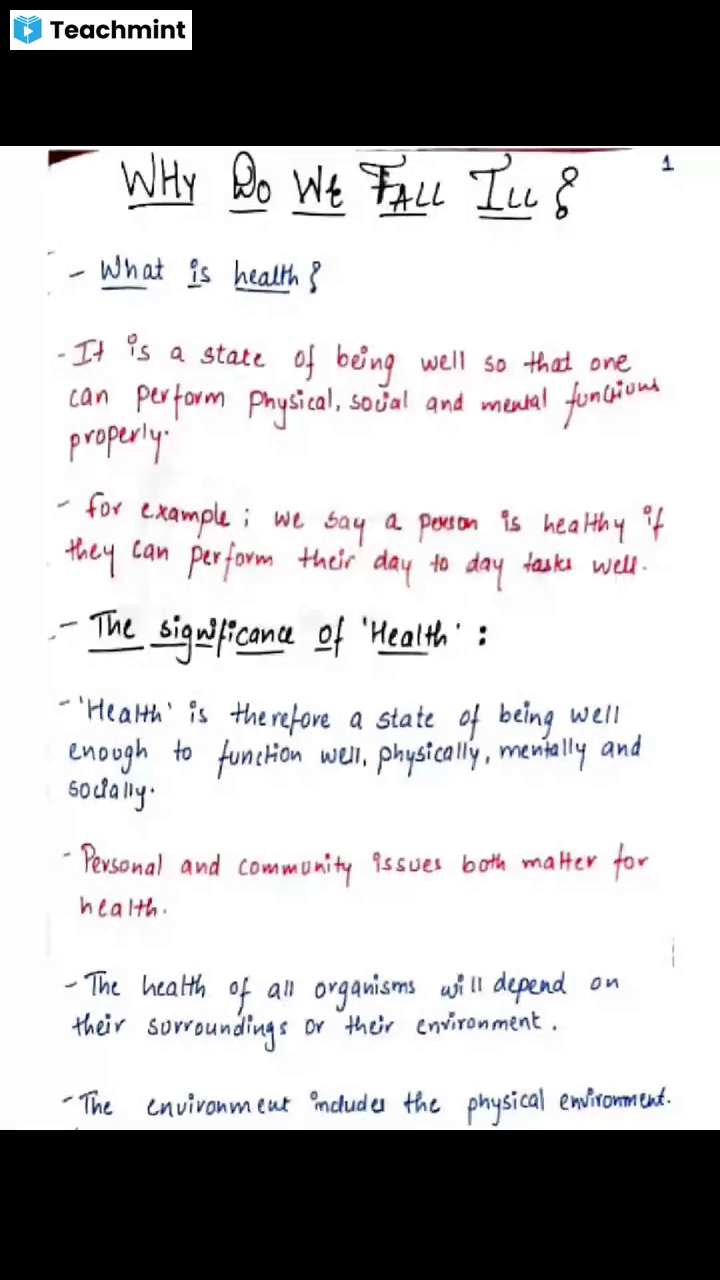 Teachmint
1
WHY DO WE FALL ILL ?
- What is health ?
- It is a state of being well so that one
can perform physical, social and mental functions
properly.
- for example ; we say a person is healthy if
they can perform their day to day tasks well.
- The significance of 'Health' :
- 'Health' is therefore a state of being well
enough to function well, physically, mentally and
socially.
- Personal and community issues both matter for
health.
- The health of all organisms will depend on
their surroundings or their environment.
- The environment includes the physical environment.